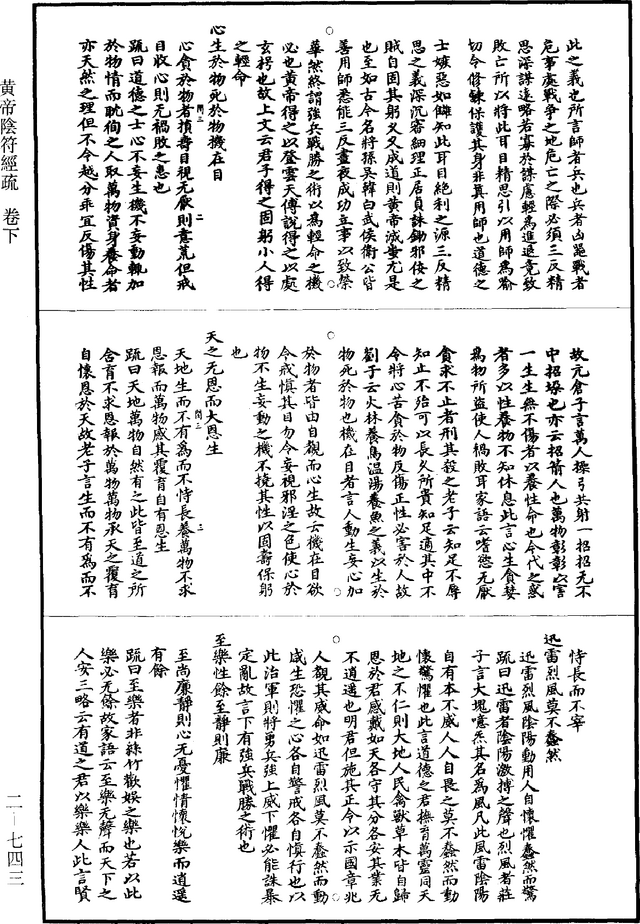 黃帝陰符經疏 卷下
此之義也所言師者兵也兵者凶器戰者
危事處戰爭之地危亡之際必須三反精
思深謀遠略若寡於謀慮輕爲進退竟致
敗亡所以將此耳目精思引以用師爲喻
切令修鍊保護其身非真用師也道德之
士嫉惡如讎知此耳目絕利之源三反精
思之義深沉審細理正居貞誅鋤邪佞之
賊自固其躬久久成道則黃帝滅蚩尤是
也至如古今名將孫吳韓白武侯衛公皆
善用師悉能三反晝夜成功立事以致榮
華然終謂強兵戰勝之術以爲輕命之機
必也黃帝得之以登雲天傅說得之以處
玄枵也故上文云君子得之固躬小人得
之輕命
心生於物死於物機在目
心貪於物者損壽目視无厭則意荒但戒
閉三 二
目收心則无禍敗之患也
疏曰道德之士心不妄生機不妄動輒加
於物情而耽徇之人取萬物資身養命者
亦天然之理但不令越分乖宜反傷其性
故亢倉子言萬人操弓共射一招招无不
中招埻也亦云招箭人也萬物彰彰以害
一生生無不傷者以養性命也今代之惑
者多以性養物不知休息此言心生貪婪
爲物所盜使人禍敗耳家語云嗜慾无厭
貪求不止者刑其殺之老子云知足不辱
知止不殆可以長久所貴知足適其中不
令將心苦貪於物反傷正性必害於人故
劉子云火林養鳥溫湯養魚之義以生於
物死於物也機在目者言人動生妄心加
於物者皆由自觀而心生故云機在目欲
令戒慎其目勿令妄視邪淫之色使心於
物不生妄動之機不撓其性以固壽保躬
也
天之无恩而大恩生
天地生而不有爲而不恃長養萬物不求
閉三 三
恩報而萬物感其覆育自有恩生
疏曰天地萬物自然有之此皆至道之所
含育不求恩報於萬物萬物承天之覆育
自懷恩於天故老子言生而不有爲而不
恃長而不宰
迅雷烈風莫不蠢然
迅雷烈風陰陽動用人自懷懼蠢然而驚
疏曰迅雷者陰陽激搏之聲也烈風者莊
子言大塊噫炁其名爲風凡此風雷陰陽
自有本不威人人自畏之莫不蠢然而動
懷驚懼也此言道德之君撫育萬靈同天
地之不仁則大地人民禽獸草木皆自歸
恩於君感戴如天各守其分各安其業无
不逍遙也明君但施其正令以示國章兆
人觀其威命如迅雷烈風莫不蠢然而動
咸生恐懼之心各自警戒各自慎行也以
此治軍則將勇兵強上威下懼必能誅暴
定亂故言下有強兵戰勝之術也
至樂性餘至靜則廉
至尚廉靜則心无憂懼情懷悅樂而逍遙
有餘
疏曰至樂者非絲竹歡娛之樂也若以此
樂必无餘故家語云至樂无聲而天下之
人安三略云有道之君以樂樂人此言賢
二—七四三